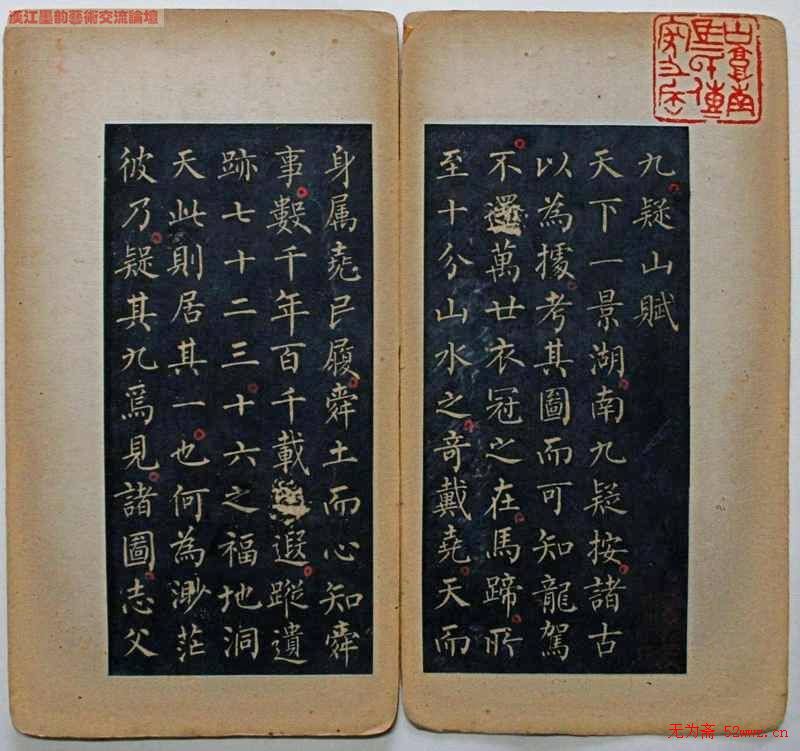 漢江墨韵藝術交流論壇
九疑山賦
天下一景湖南九疑按諸古
以為據考其圖而可知龍駕
不還萬廿衣冠之在馬蹄所
至十分山水之奇戴堯天而
身属堯已履舜土而心知舜
事數千年百千載遐蹤遺
跡七十二三十六之福地洞
天此則居其一也何為渺茫
彼乃疑其九焉見諸圖志父
无为斋 52wwz.cn